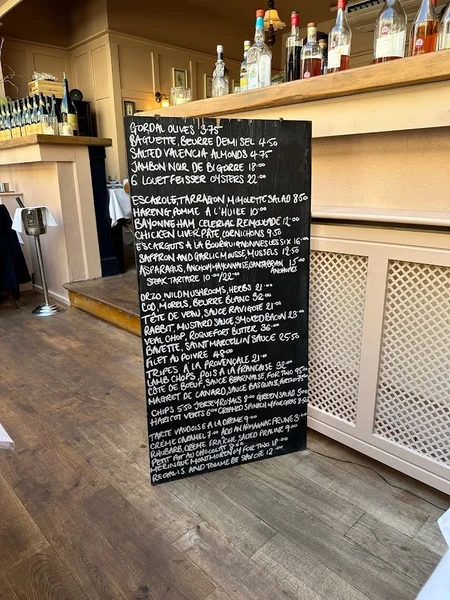 GORDAL OLIVES 3.75
BAGUETTE, BEURRE DEMI SEL 4.50
SALTED VALENCIA ALMONDS 4.75
JAMBON NOIR DE BIGORRE 18.00
6 LOUET FEISSER OYSTERS 22.00
ESCAROLE, TARRAGON MIMOLETTE SALAD 8.50
HARENG POMME A L'HUILE 10.00
BAYONNE HAM CELERIAC REMOULADE 12.00
CHICKEN LIVER PÂTE CORNICHONS 9.50
ESCARGOTS A LA BOURGUIGNONNES LES SIX 16.00
SAFFRON AND GARLIC MOUSSE, MUSSELS 12.50
ASPARAGUS, ANCHOVY MAYONNAISE, CANTABRIAN 15.00
ANCHOVIES
STEAK TARTARE 10.00/22.00
ORZO WILD MUSHROOMS, HERBS 21.00
COD, MORELS, BEURRE BLANC 32.00
TÊTE DE VEAU, SAUCE RAVIGOTE 21.00
RABBIT, MUSTARD SAUCE SMOKED BACON 25.00
VEAL CHOP, ROQUEFORT BUTTER 36.00
BAVETTE, SAINT MARCELLIN SAUCE 25.50
FILET AU POIVRE 48.00
TRIPES A LA PROVENÇALE 21.00
LAMB CHOPS, POIS A LA FRANCAISE 32.00
CÔTE DE BŒUF, SAUCE BEARNAISE, FOR TWO 95.00
MAGRET DE CANARD, SAUCE BASQUAISE,
CHIPS 5.50 JERSEY ROYALS 8.00 GREEN SALAD 5.00
HARICOT VERTS 6.00 CREAMED SPINACH
TARTE VAUDOISE A LA CRÈME 9.00
CRÈME CARAMEL 7.00 ADD AN ARMAGNAC PRUNE 3.00
RHUBARB CRÈME FRAÎCHE SALTED PRALINE 9.00
PETIT POT AU CHOCOLAT 8.50
MERINGUE MONTMORENCY FOR TWO 18.00
REGALIS AND TOMME DE SAVOIE 12.00